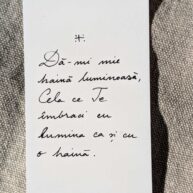 Dă-mi mie
haină luminoasă,
Cela ce Te
îmbraci cu
lumina ca și cu
o haină.